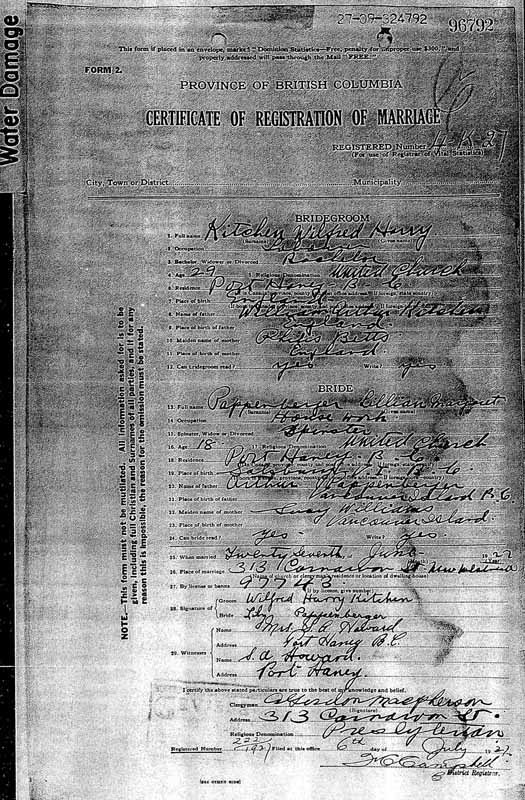 Water Damage
27-09-324792
96792
This form if placed in an envelope, marked "Dominion Statistics—Free, penalty for improper use $300," and
properly addressed will pass through the Mail "FREE."
FORM 2.
PROVINCE OF BRITISH COLUMBIA
CERTIFICATE OF REGISTRATION OF MARRIAGE
REGISTERED Number
(For use of Registrar of Vital Statistics)
City, Town or District Municipality
NOTE—This form must not be mutilated. All information asked for is to be
given, including full Christian and Surnames of all parties, and if for any
reason this is impossible, the reason for the omission must be stated.
BRIDEGROOM
1. Full name Kitchen Wilfred Harry
(Surname) (Given name)
2. Occupation Labourer
3. Bachelor, Widower or Divorced Bachelor
4. Age 29 5. Religious Denomination United Church
6. Residence Port Haney B C
7. Place of birth England
8. Name of father William Kitchen
9. Place of birth of father England
10. Maiden name of mother Betts
11. Place of birth of mother England
12. Can bridegroom read? yes Write? yes
BRIDE
13. Full name Pappenberger Lillian Margaret
(Surname) (Given name)
14. Occupation House work
15. Spinster, Widow or Divorced Spinster
16. Age 18 17. Religious Denomination United Church
18. Residence Port Haney B C
19. Place of birth B. C.
20. Name of father Arthur Pappenberger
21. Place of birth of father Vancouver Island B.C.
22. Maiden name of mother Lucy Williams
23. Place of birth of mother Vancouver Island
24. Can bride read? yes Write? yes
25. When married Twenty Seventh June 1927
26. Place of marriage 313 Carnarvon St New Westmr
(Name of church or clergyman's residence or location of dwelling house)
27. By license or banns 97743
(If by license, give number)
28. Signature of Groom Wilfred Harry Kitchen
Bride Pappenberger
29. Witnesses Name Mrs. S. A. Howard
Address Port Haney B.C.
Name S. A. Howard.
Address Port Haney.
I certify the above stated particulars are true to the best of my knowledge and belief.
Clergyman A Gordon Macpherson
(Signature)
Address 313 Carnarvon St.
Religious Denomination Presbyterian
Registered Number 222/1927 Filed at this office 6th day of July 1927
Campbell
District Registrar.
(SEE OTHER SIDE)